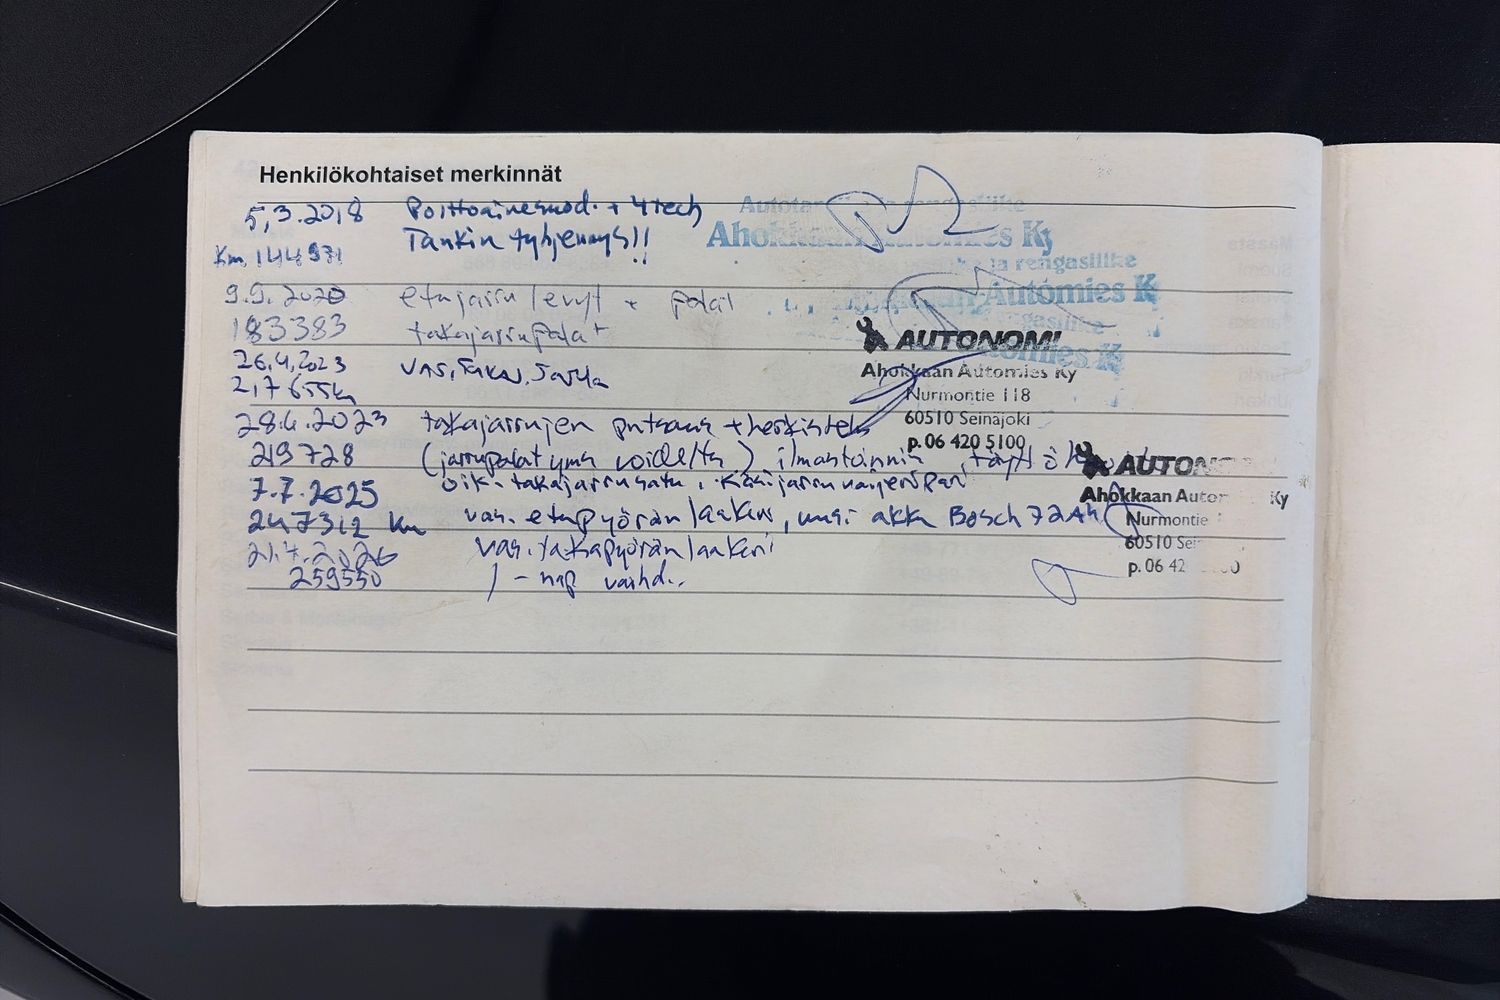 Henkilökohtaiset merkinnät
5.3.2018 Polttoainesuod. + 4Tech
Tankin tyhjennys!!
Km 144971
9.9.2020 etujarru levyt + palat
183383 takajarrupalat
26.4.2023 vas. takaj.
217655km
28.6.2023 takajarrujen putsaus + herkistely
219728 (jarrupalat yms voideltu) ilmastoinnin täyttö
7.7.2025 oik. takajarrusatula, käsijarruvaijeripari
247312 km vas. etupyörän laakeri, uusi akku Bosch 72Ah
21.4.2026 vas. takapyörän laakeri
259550 / -nap vaihd..
Autotar rengasliike
Ahokkaan Automies Ky
ja rengasliike
Automies K
ngasliike
mies K
AUTONOMI
Ahokkaan Automies Ky
Nurmontie 118
60510 Seinäjoki
p. 06 420 5100
AUTON
Ahokkaan Autom Ky
Nurmontie
60510 Sei
p. 06 42 0